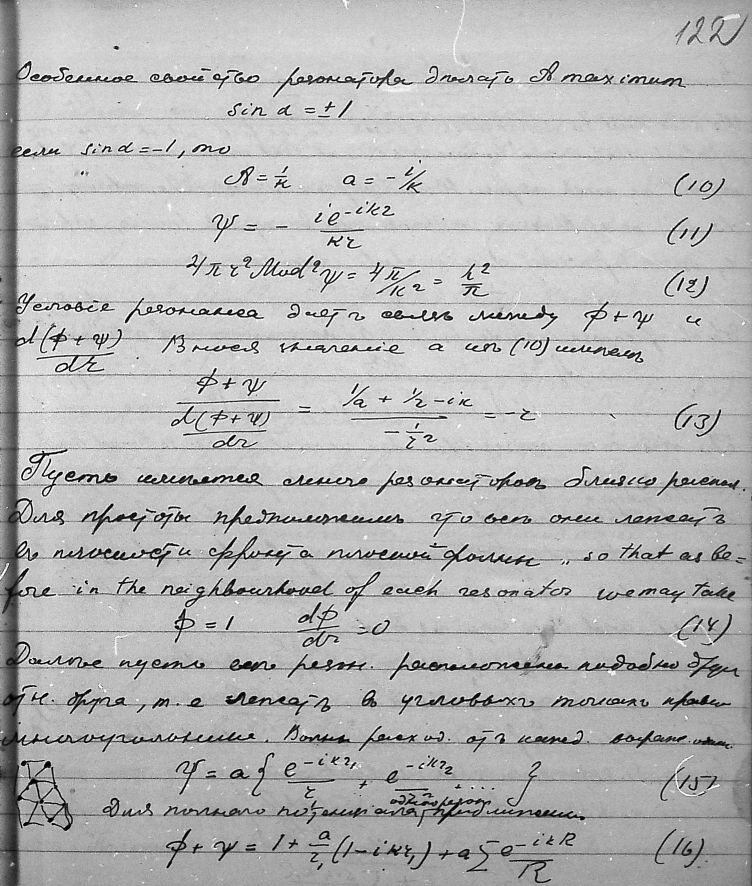 122
Особенное свойство резонатора делать A maximum
sin α = ±1
если sin α = -1, то
A = 1/k   a = -i/k   (10)
ψ = - ie^{-ikr}/kr   (11)
4πr² Mod²ψ = 4π/k² = λ²/π   (12)
Условіе резонанса даетъ связь между ϕ+ψ и
d(ϕ+ψ)/dr  Внося значеніе a изъ (10) имѣемъ
(ϕ+ψ)/(d(ϕ+ψ)/dr) = (1/a + 1/r - ik)/(-1/r²) = -r   (13)
Пусть имѣется много резонаторовъ близко распол.
Для простоты предположимъ что все они лежатъ
въ плоскости фронта плоской волны „so that as be=
fore in the neighbourhood of each resonator we may take
ϕ = 1   dϕ/dr = 0   (14)
Далѣе пусть все резон. расположены подобно друг
отн. друга, т.е лежатъ въ угловыхъ точкахъ правил
многоугольника. Волны расход. отъ кажд.
ψ = a { e^{-ikr₁}/r₁ + e^{-ikr₂}/r₂ + ... }   (15)
Для полнаго потенціала
ϕ + ψ = 1 + a/r₁ (1 - ikr₁) + a Σ e^{-ikR}/R   (16)